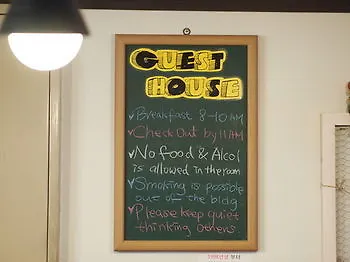 GUEST
HOUSE
✓Breakfast 8-10 AM
✓Check Out by 11AM
✓No food & Alcol
is allowed in the room
✓Smoking is possible
out of the bldg
✓Please keep quiet
thinking others